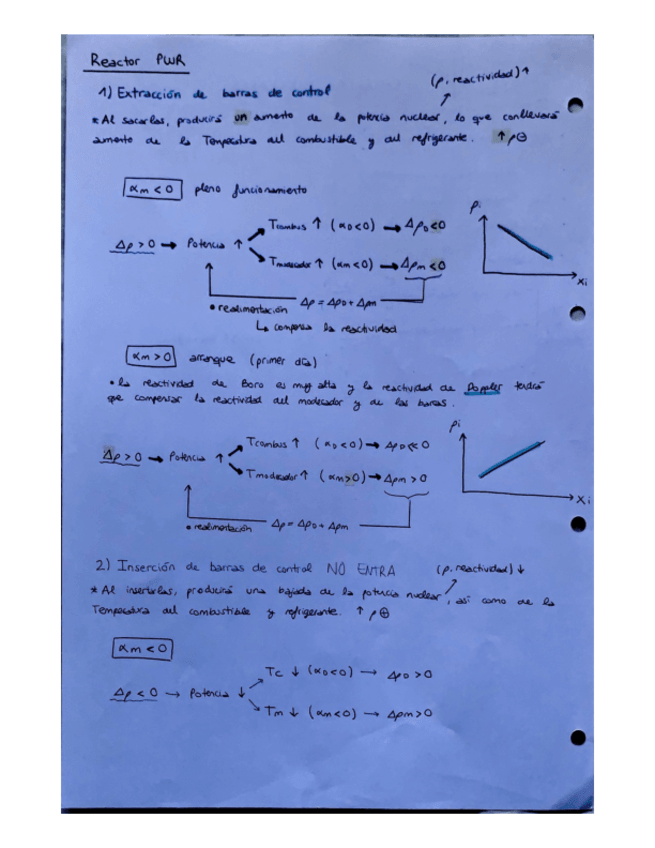 Reactor PWR
1) Extracción de barras de control
(ρ, reactividad) ↑
* Al sacarlas, producirá un aumento de la potencia nuclear, lo que conllevará
aumento de la Temperatura del combustible y del refrigerante. ↑ ρ⊖
αm < 0 pleno funcionamiento
Tcombus ↑ (αD<0) → ΔρD<0
Δρ > 0 → Potencia ↑
Tmoderador ↑ (αm<0) → Δρm<0
• realimentación Δρ = ΔρD + Δρm
↳ compensa la reactividad
ρi
xi
αm > 0 arranque (primer día)
• la reactividad de Boro es muy alta y la reactividad de Doppler tendrá
que compensar la reactividad del moderador y de las barras.
Tcombus ↑ (αD<0) → ΔρD≪0
Δρ > 0 → Potencia ↑
Tmoderador ↑ (αm>0) → Δρm > 0
• realimentación Δρ = ΔρD + Δρm
ρi
xi
2) Inserción de barras de control NO ENTRA (ρ, reactividad) ↓
* Al insertarlas, producirá una bajada de la potencia nuclear, así como de la
Temperatura del combustible y refrigerante. ↑ ρ⊕
αm < 0
Tc ↓ (αD<0) → ΔρD > 0
Δρ < 0 → Potencia ↓
Tm ↓ (αm<0) → Δρm > 0